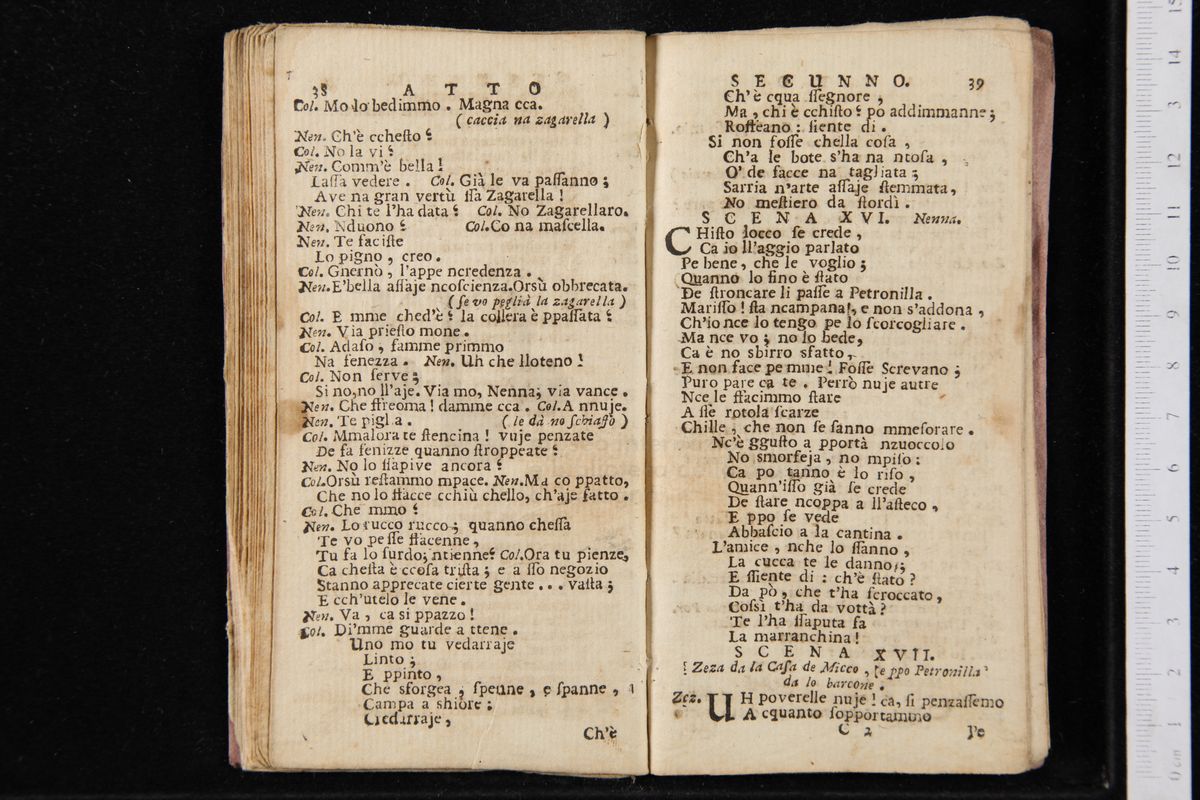 38 ATTO
Col. Mo lo bedimmo. Magna cca.
( caccia na zagarella )
Nen. Ch'è cchesto?
Col. No la vi?
Nen. Comm'è bella!
Lassa vedere. Col. Già le va passanno;
Ave na gran vertù ssa Zagarella!
Nen. Chi te l'ha data? Col. No Zagarellaro.
Nen. Nduono? Col. Co na mascella.
Nen. Te faciste
Lo pigno, creo.
Col. Gnernò, l'appe ncredenza.
Nen. E'bella assaje ncoscienza. Orsù obbrecata.
( se vo peglià la zagarella )
Col. E mme ched'è? la collera è ppassata?
Nen. Via priesto mone.
Col. Adaso, famme primmo
Na fenezza. Nen. Uh che lloteno!
Col. Non serve;
Si no, no ll'aje. Via mo, Nenna; via vance.
Nen. Che ffreoma! damme cca. Col. A nnuje.
Nen. Te piglia. ( le dà no schiaffo )
Col. Mmalora te stencina! vuje penzate
De fa fenizze quanno stroppeate?
Nen. No lo ssapive ancora?
Col. Orsù restammo mpace. Nen. Ma co ppatto,
Che no lo ffacce cchiù chello, ch'aje fatto.
Col. Che mmo?
Nen. Lo rucco rucco; quanno chessa
Te vo pesse ffacenne,
Tu fa lo surdo; ntienne? Col. Ora tu pienze,
Ca chesta è ccosa trista; e a sso negozio
Stanno apprecate cierte gente... vasta;
E cch'utelo le vene.
Nen. Va, ca si ppazzo!
Col. Di'mme guarde a ttene.
Uno mo tu vedarraje
Linto;
E ppinto,
Che sforgea, spenne, e spanne,
Campa a shiore;
Credarraje,
Ch'è
SECUNNO. 39
Ch'è cqua ssegnore,
Ma, chi è cchisto? po addimmanne;
Roffeano: siente di.
Si non fosse chella cosa,
Ch'a le bote s'ha na ntosa,
O' de facce na tagliata;
Sarria n'arte assaje stemmata,
No mestiero da stordì.
SCENA XVI. Nenna.
CHisto locco se crede,
Ca io ll'aggio parlato
Pe bene, che le voglio;
Quanno lo fino è stato
De stroncare li passe a Petronilla.
Marisso! sta ncampana!, e non s'addona,
Ch'io nce lo tengo pe lo scorcogliare.
Ma nce vo; no lo bede,
Ca è no sbirro sfatto,
E non face pe mme! Fosse Screvano;
Puro pare ca te. Perrò nuje autre
Nce le ffacimmo stare
A ssè rotola scarze
Chille, che non se sanno mmesorare.
Nc'è ggusto a pportà nzuoccolo
No smorfeja, no mpiso:
Ca po tanno è lo riso,
Quann'isso già se crede
De stare ncoppa a ll'asteco,
E ppo se vede
Abbascio a la cantina.
L'amice, nche lo ssanno,
La cucca te le danno,;
E ssiente di: ch'è stato?
Da pò, che t'ha scroccato,
Cossì t'ha da vottà?
Te l'ha ssaputa fa
La marranchina!
SCENA XVII.
Zeza da la Casa de Micco, e ppo Petronilla
da lo barcone.
Zez. UH poverelle nuje! ca, si penzassemo
A cquanto sopportammo
C 2 Pe